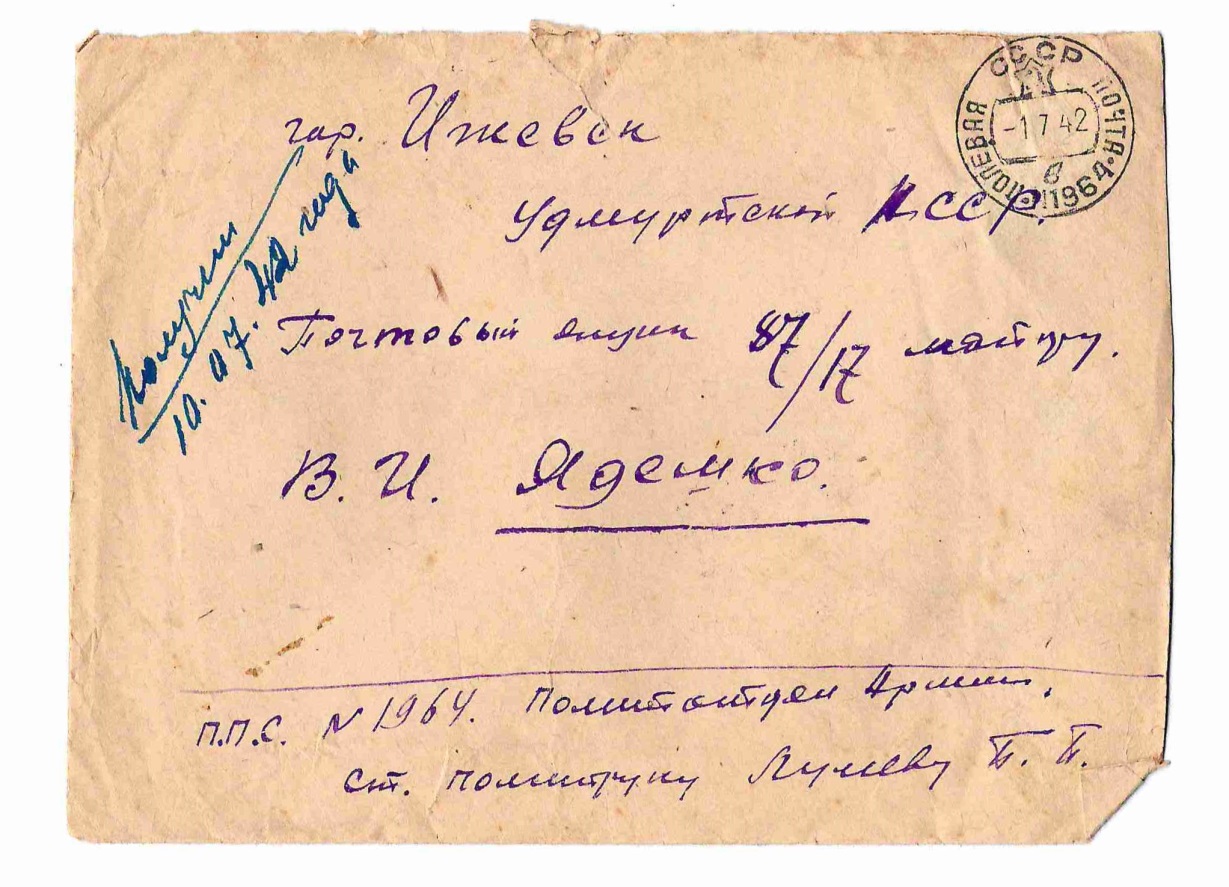 СССР
ПОЛЕВАЯ ПОЧТА
-1 7 42
в
1964
гор. Ижевск
Удмуртской АССР.
Получен
10.07.42 года
Почтовый ящик 87/17 майору.
В. И. Ядемко.
П.П.С. № 1964. Политотдел Армии.
ст. политруку П. П.